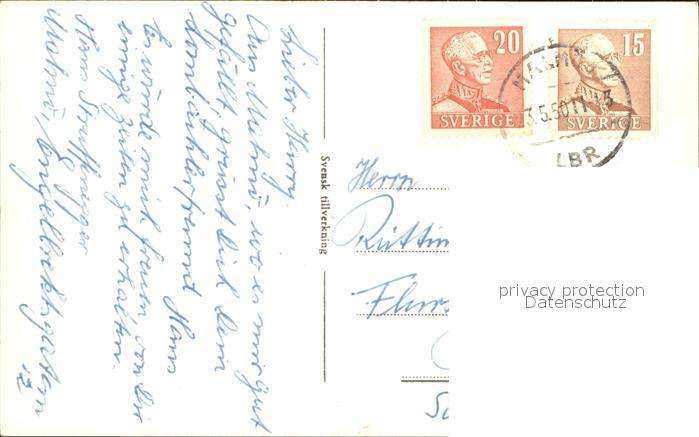 Lieber Harry.
Aus Malmö, wo es mir gut
gefällt, grüsst dich dein
dankbarer Freund Hans
Es würde mich freuen von dir
einige Zeilen zu erhalten.
Hans
Malmö, Engelbrektsgatan
12
Svensk tillverkning
20
SVERIGE
15
SVERIGE
MALMÖ
LBR
Herrn
privacy protection
Datenschutz